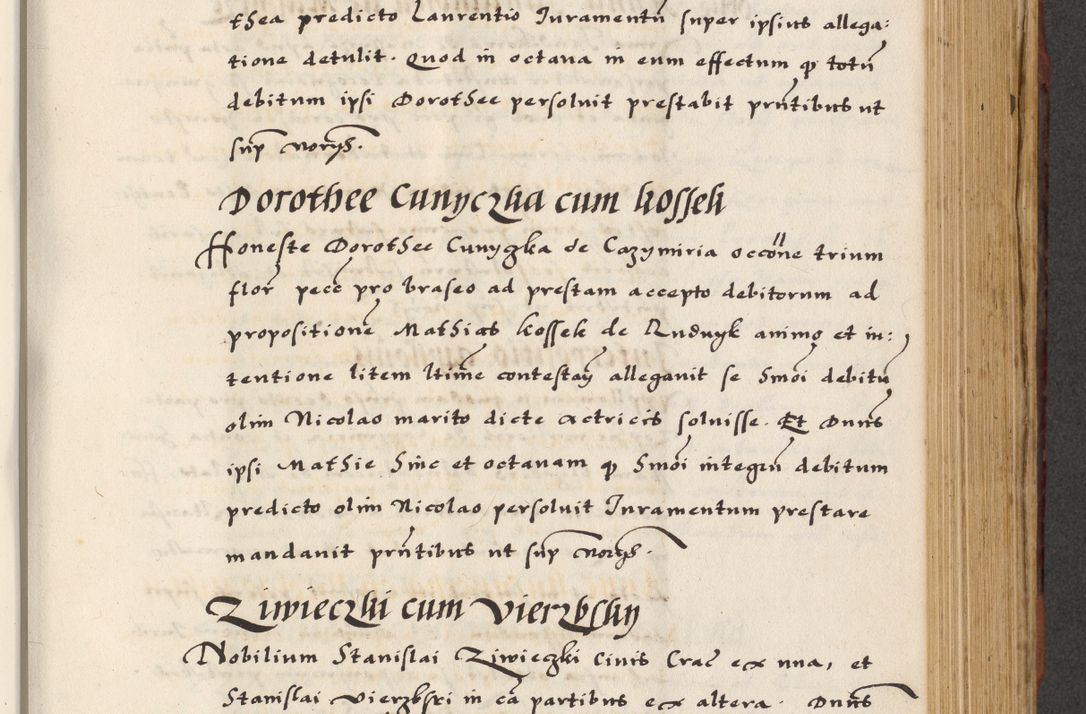 thea predicto Laurentio Iuramentũ super ipsius allega:
tione detulit. Quod in octaua in eum effectum ꝙ totũ
debitum ipsi Dorothee persoluit prestabit prñtibus ut
sup̃ norẏs.
Dorothee Cunyczka cum kossek
Honeste Dorothee Cunyczka de Cazymiria occõne trium
flor̃ pecc̃ pro braseo ad prestam accepto debitorum ad
propositionẽ Mathias kossek de Luduyk animo et in:
tentione litem ltime contestañ allegauit se Smõi debitũ
olim Nicolao marito dicte actricis soluisse. Et Dnus
ipsi Mathie hinc et octauam ꝙ Smõi integrũ debitum
predicto olim Nicolao persoluit Iuramentum prestare
mandauit prñtibus ut sup̃ norẏs.
Ziwieczki cum Vierzbsky
Nobilium Stanislai Ziwieczki Ciuis Crac̃ ex una, et
Stanislai Vierzbski in eã partibus ex altera. Dnus